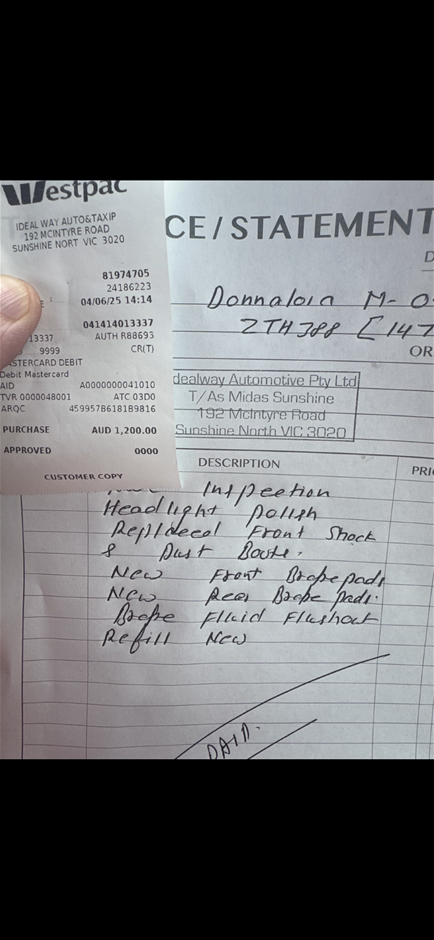 Westpac
IDEAL WAY AUTO&TAXIP
192 MCINTYRE ROAD
SUNSHINE NORT VIC 3020
81974705
24186223
04/06/25 14:14
041414013337
13337 AUTH R88693
9999 CR(T)
MASTERCARD DEBIT
Debit Mastercard
AID A0000000041010
TVR 0000048001 ATC 03D0
ARQC 459957B6181B9816
PURCHASE AUD 1,200.00
APPROVED 0000
CUSTOMER COPY
CE/STATEMENT
Donnaloia M-
2TH388 [147
OR
dealway Automotive Pty Ltd
T/As Midas Sunshine
192 McIntyre Road
Sunshine North VIC 3020
DESCRIPTION PRI
Inspection
Headlight Polish
Replaced Front Shock
& Dust Boots.
New Front Brake pads
New Rear Brake Pads.
Brake Fluid Flushout
Refill New
PAID.